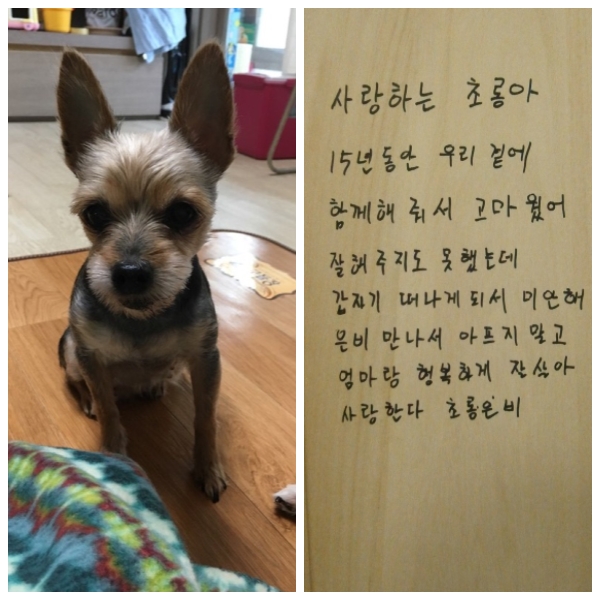 사랑하는 초롱아
15년동안 우리 곁에
함께해 줘서 고마웠어
잘해주지도 못했는데
갑자기 떠나게 되서 미안해
은비 만나서 아프지 말고
엄마랑 행복하게 잘 살아
사랑한다 초롱은비